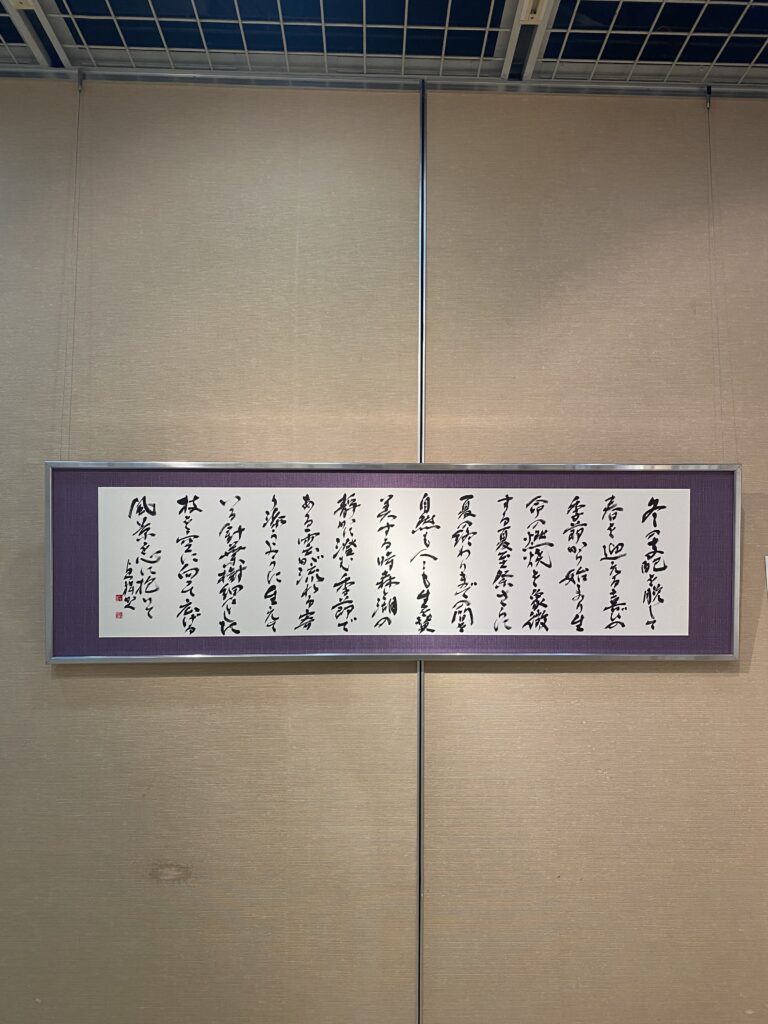 冬の支配を脱して
春を迎える喜びの
季節から始まり生
命の燃焼を象徴
する夏至祭さらに
夏の終わりまでの間を
自然も人々も生を賛
美する時森と湖の
静かに澄む季節で
ある雲が流れる寄
り添うように生えて
いる針葉樹細々とした
枝を空に向って広げる
風景を心に抱いて